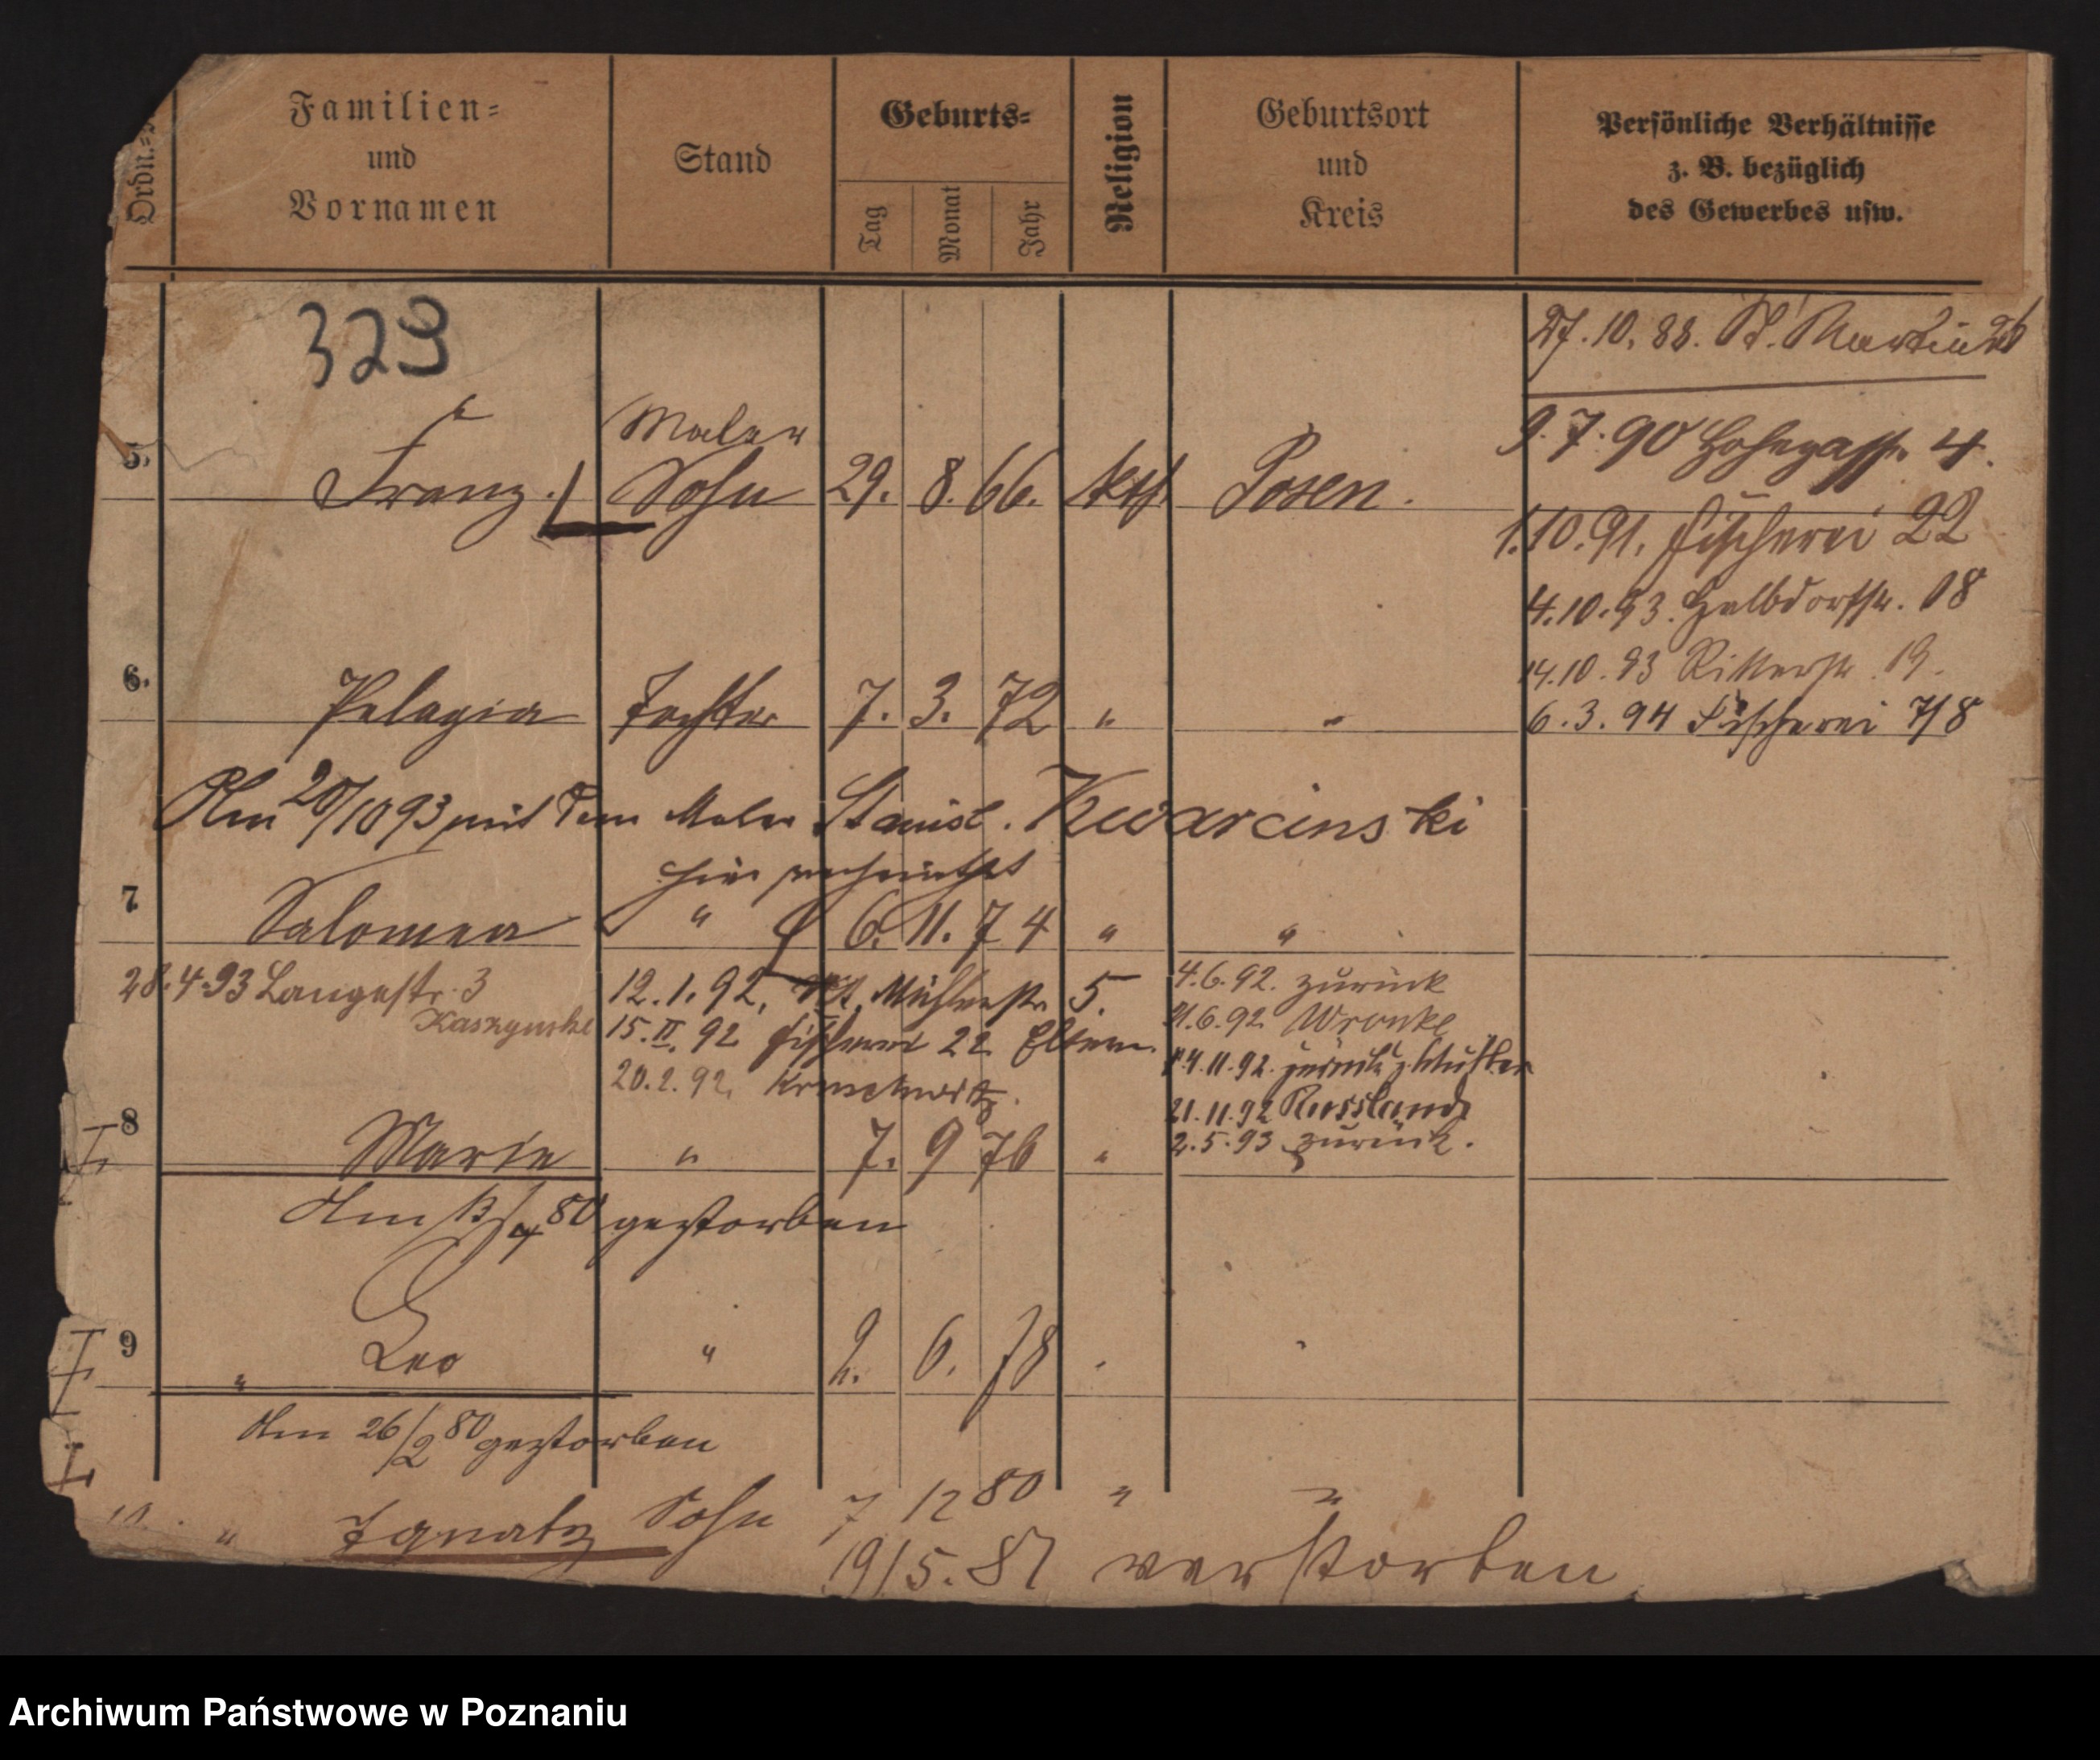 Ordn.=
Familien=
und
Vornamen
Stand
Geburts=
Tag
Monat
Jahr
Religion
Geburtsort
und
Kreis
Persönliche Verhältnisse
z. B. bezüglich
des Gewerbes usw.
329
27.10.88. St. Martin 26
9.7.90 Hohegasse 4.
Maler
5. Franz. Sohn 29. 8. 66. kth. Posen.
1.10.91. Fischerei 22
4.10.93. Halbdorfstr. 18
14.10.93 Ritterstr. 19.
6. Pelagia Tochter 7. 3. 72 " "
6.3.94 Fischerei 7/8
Am 20/10 93 mit dem Maler Stanisl. Kwarcinski
hier verheirathet
7 Salomea " 6. 11. 74 " "
28.4.93 Langestr. 3
12.1.92, Mühlenstr. 5.
15.II.92 Fischerei 22 Eltern.
20.2.92,
4.6.92. zurück
21.6.92 Wronke
14.11.92. zurück z. Mutter
21.11.92 Russland
2.5.93 zurück.
8 Marie " 7. 9 76 "
Am 80 gestorben
9 " Leo " 2. 6. 78
Am 26/2 80 gestorben
" Ignatz Sohn 7 12 80 " "
19/5. 81 verstorben
Archiwum Państwowe w Poznaniu